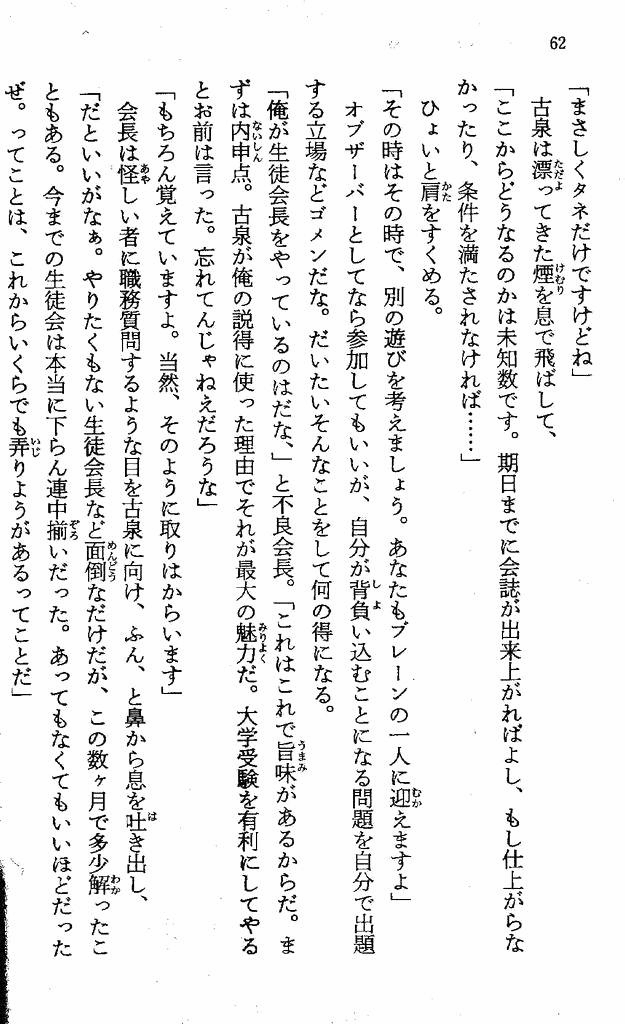 62
「まさしくタネだけですけどね」
古泉は漂ってきた煙を息で飛ばして、
「ここからどうなるのかは未知数です。期日までに会誌が出来上がればよし、もし仕上がらな
かったり、条件を満たされなければ……」
ひょいと肩をすくめる。
「その時はその時で、別の遊びを考えましょう。あなたもブレーンの一人に迎えますよ」
オブザーバーとしてなら参加してもいいが、自分が背負い込むことになる問題を自分で出題
する立場などゴメンだな。だいたいそんなことをして何の得になる。
「俺が生徒会長をやっているのはだな、」と不良会長。「これはこれで旨味があるからだ。ま
ずは内申点。古泉が俺の説得に使った理由でそれが最大の魅力だ。大学受験を有利にしてやる
とお前は言った。忘れてんじゃねえだろうな」
「もちろん覚えていますよ。当然、そのように取りはからいます」
会長は怪しい者に職務質問するような目を古泉に向け、ふん、と鼻から息を吐き出し、
「だといいがなぁ。やりたくもない生徒会長など面倒なだけだが、この数ヶ月で多少解ったこ
ともある。今までの生徒会は本当に下らん連中揃いだった。あってもなくてもいいほどだった
ぜ。ってことは、これからいくらでも弄りようがあるってことだ」